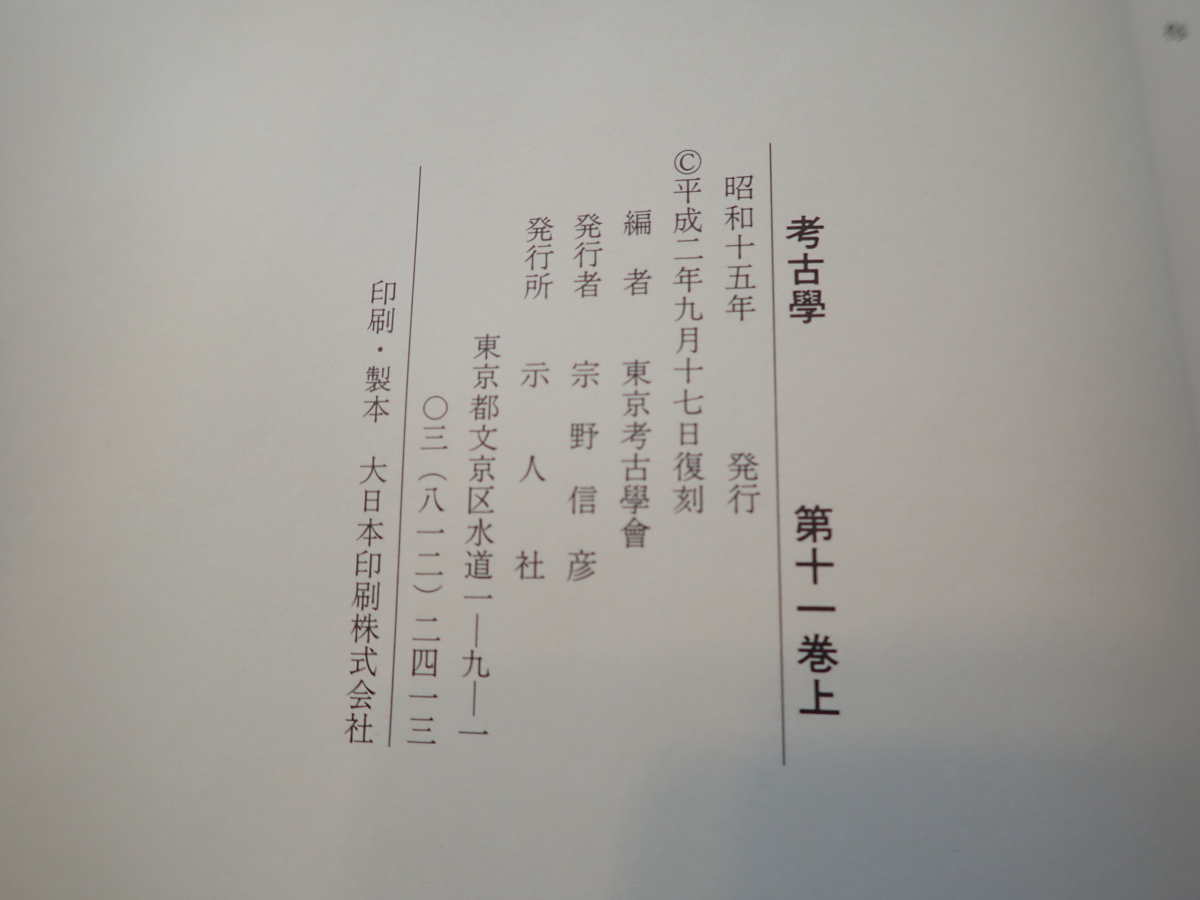 考古學 第十一巻上
昭和十五年 発行
©平成二年九月十七日復刻
編者 東京考古學會
発行者 宗野信彦
発行所 示人社
東京都文京区水道一—九—一
〇三(八一二)二四一三
印刷・製本 大日本印刷株式会社